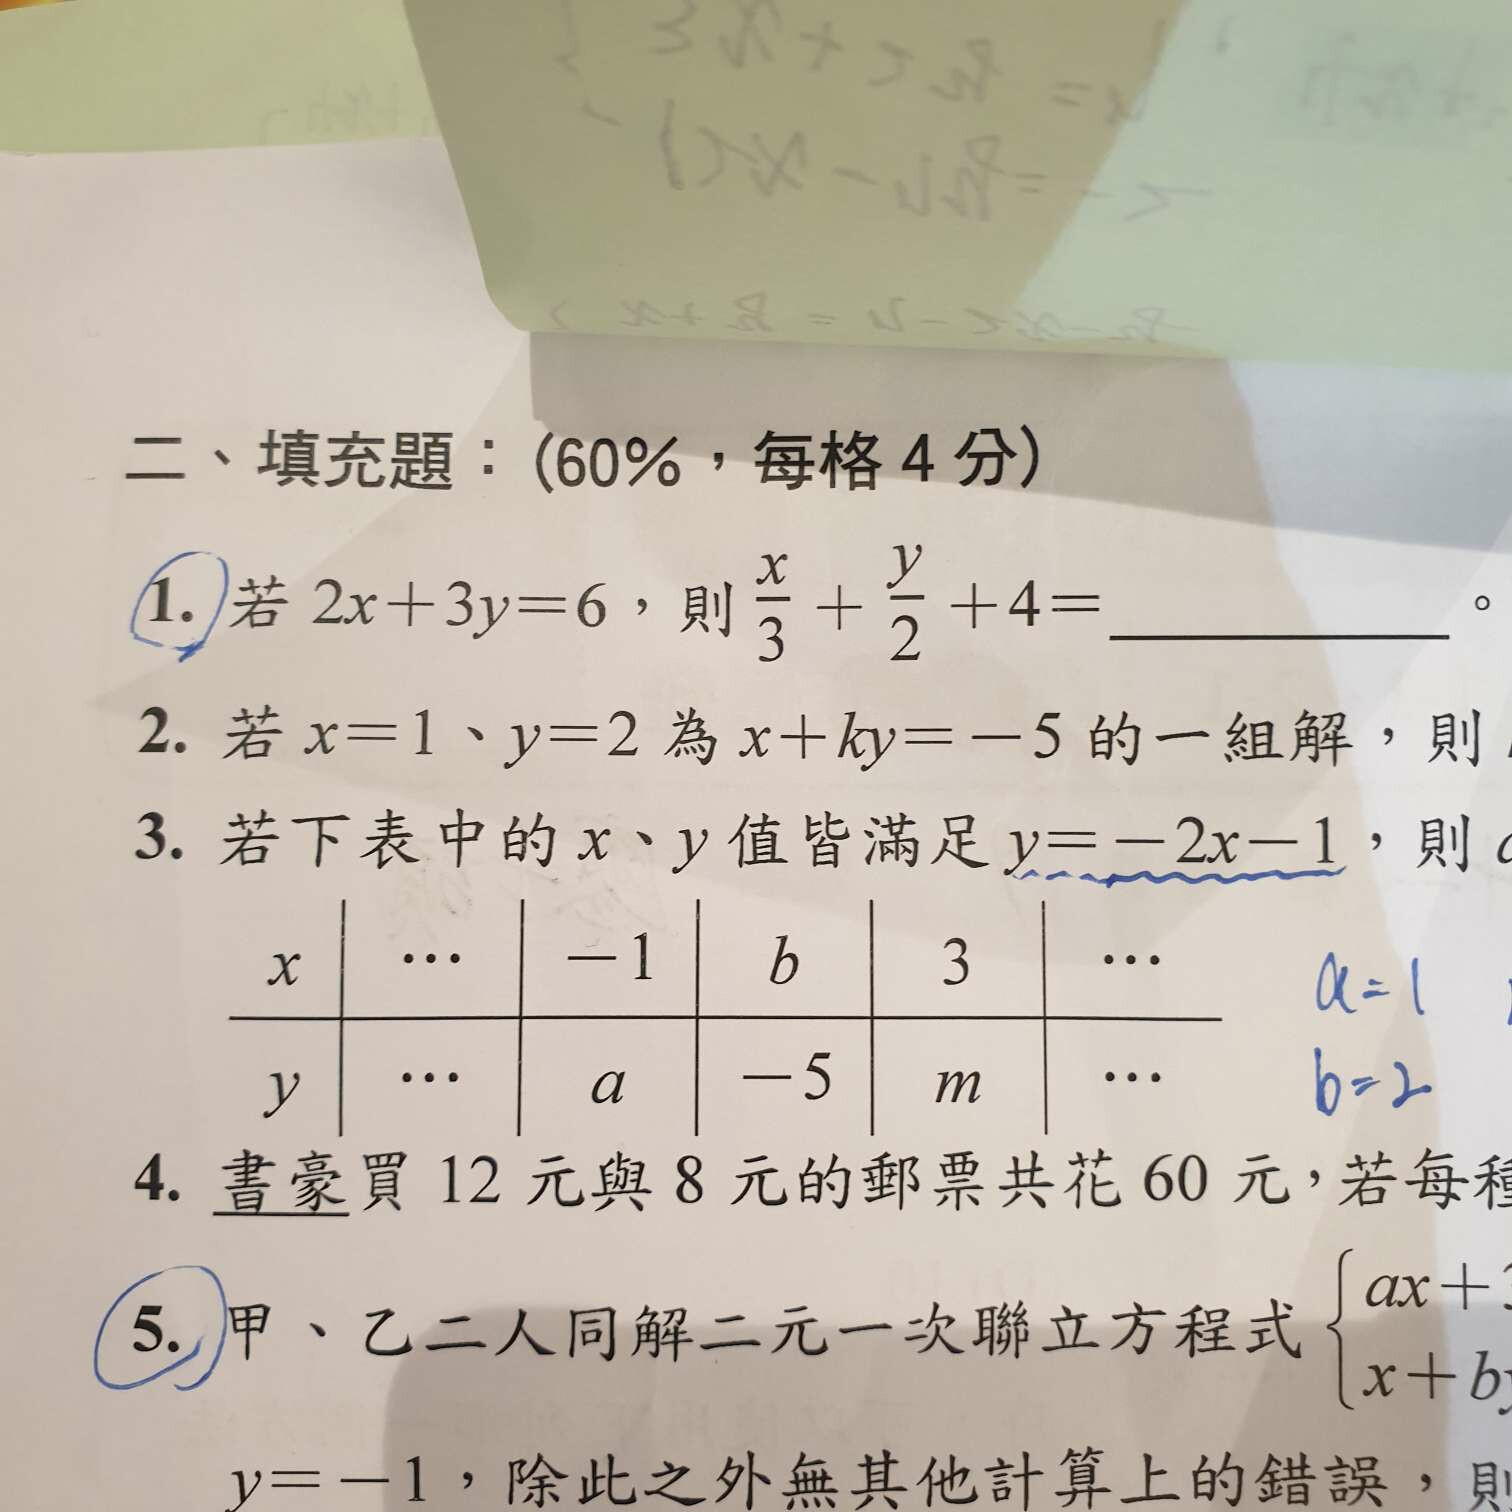 二、填充題：(60%，每格 4 分)
1. 若 2x+3y=6，則 x/3 + y/2 +4=________。
2. 若 x=1、y=2 為 x+ky=-5 的一組解，則
3. 若下表中的 x、y 值皆滿足 y=-2x-1，則
x ⋯ -1 b 3 ⋯
a=1
y ⋯ a -5 m ⋯
b=2
4. 書豪買 12 元與 8 元的郵票共花 60 元，若每種
5. 甲、乙二人同解二元一次聯立方程式 { ax+3
x+by
y=-1，除此之外無其他計算上的錯誤，則